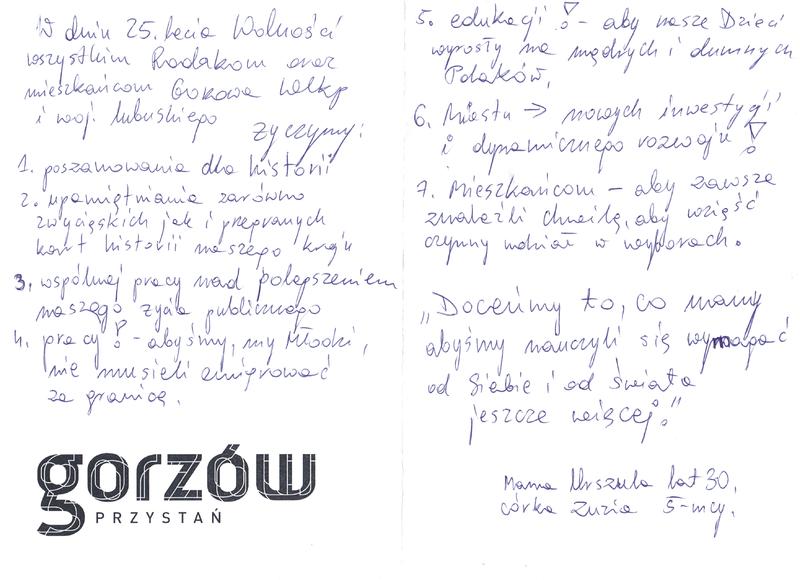 W dniu 25. lecia Wolności
wszystkim Rodakom oraz
mieszkańcom Gorzowa Wlkp
i woj. lubuskiego
życzymy:
1. poszanowania dla historii
2. upamiętniania zarówno
zwycięskich jak i przegranych
kart historii naszego kraju
3. wspólnej pracy nad polepszeniem
naszego życia publicznego
4. pracy! - abyśmy, my Młodzi,
nie musieli emigrować
za granicę.
gorzów
PRZYSTAŃ
5. edukacji! - aby nasze Dzieci
wyrosły na mądrych i dumnych
Polaków.
6. Miastu → nowych inwestycji
i dynamicznego rozwoju!
7. Mieszkańcom - aby zawsze
znaleźli chwilę, aby wziąść
czynny udział w wyborach.
„Doceńmy to, co mamy
abyśmy nauczyli się wymagać
od Siebie i od świata
jeszcze więcej."
Mama Urszula lat 30,
córka Zuzia 5-mcy.